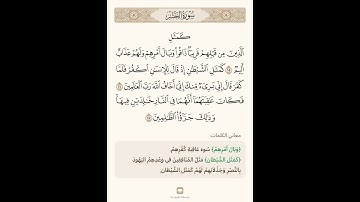 سُورَةُ الحَشْرِ
كَمَثَلِ
ٱلَّذِينَ مِن قَبْلِهِمْ قَرِيبًا ذَاقُوا۟ وَبَالَ أَمْرِهِمْ وَلَهُمْ عَذَابٌ
أَلِيمٌ ۝١٥ كَمَثَلِ ٱلشَّيْطَٰنِ إِذْ قَالَ لِلْإِنسَٰنِ ٱكْفُرْ فَلَمَّا
كَفَرَ قَالَ إِنِّى بَرِىٓءٌ مِّنكَ إِنِّىٓ أَخَافُ ٱللَّهَ رَبَّ ٱلْعَٰلَمِينَ ۝١٦
فَكَانَ عَٰقِبَتَهُمَآ أَنَّهُمَا فِى ٱلنَّارِ خَٰلِدَيْنِ فِيهَا
وَذَٰلِكَ جَزَٰٓؤُا۟ ٱلظَّٰلِمِينَ ۝١٧
معاني الكلمات
﴿وَبَالَ أَمْرِهِمْ﴾ سُوءَ عَاقِبَةِ كُفْرِهِمْ.
﴿كَمَثَلِ الشَّيْطَانِ﴾ مَثَلُ المُنَافِقِينَ فِي وَعْدِهِمُ اليَهُودَ
بِالنَّصْرِ وَخِذْلَانِهِمْ لَهُمْ كَمَثَلِ الشَّيْطَانِ.